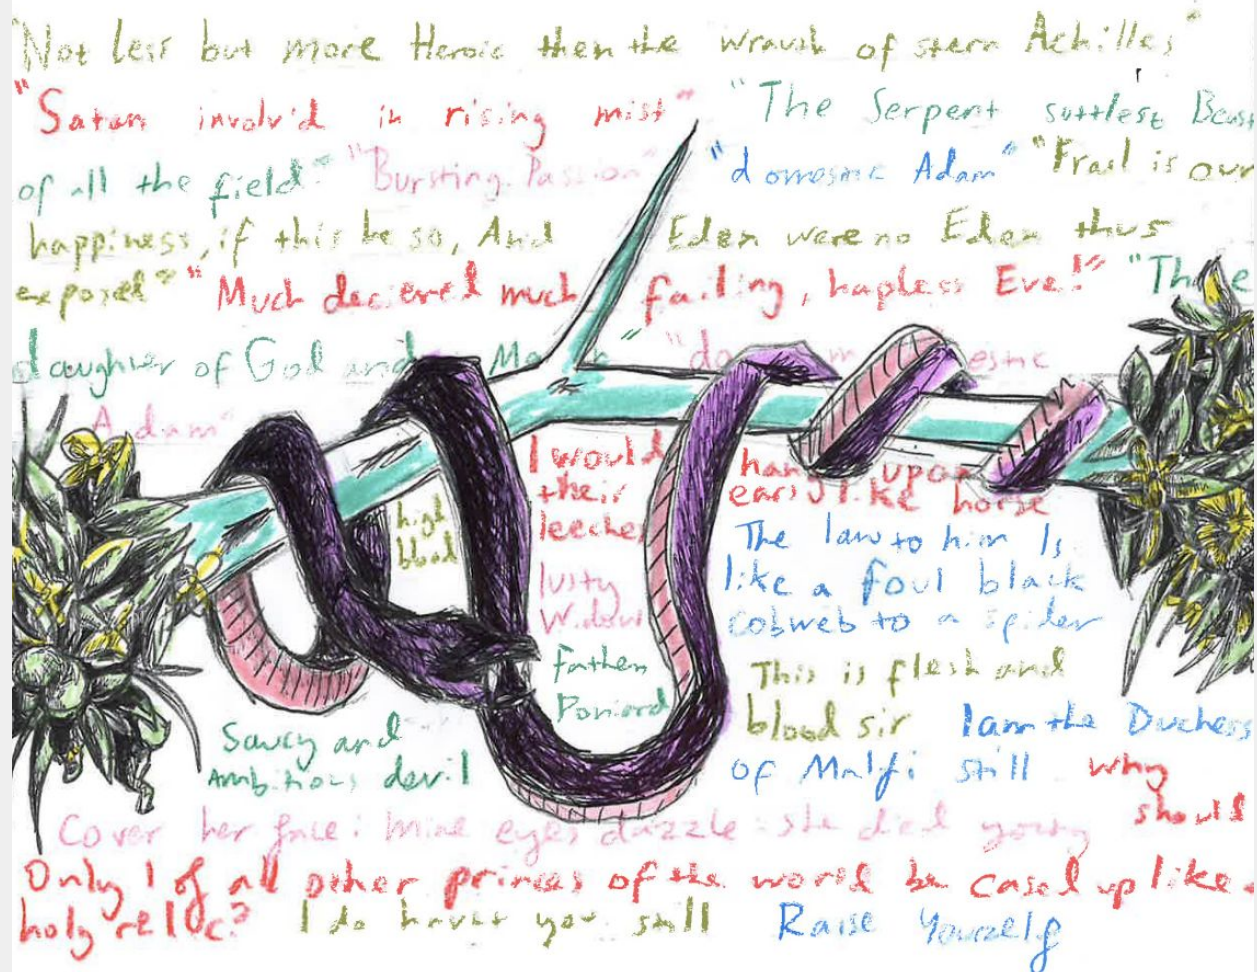 "Not less but more Heroic then the wrauth of stern Achilles"
"Satan involv'd in rising mist" "The Serpent suttlest Beast
of all the field" "Bursting Passion" "domesnic Adam" "Frail is our
happiness, if this be so, And Eden were no Eden thus
exposed" "Much decieved much failing, hapless Eve!" "The
daughter of God and Man" "domesnic
Adam"
I would hang upon
their ears like horse
leeches
high
blood
The law to him Is
like a foul black
cobweb to a spider
lusty
Widow
fathers
Poniard
This is flesh and
blood sir I am the Duchess
of Malfi still why
should
Saucy and
Ambitious devil
Cover her face: mine eyes dazzle: she died young
Only I of all other princes of the world be cased up like a
holy relic? I do haunt you still Raise Yourself